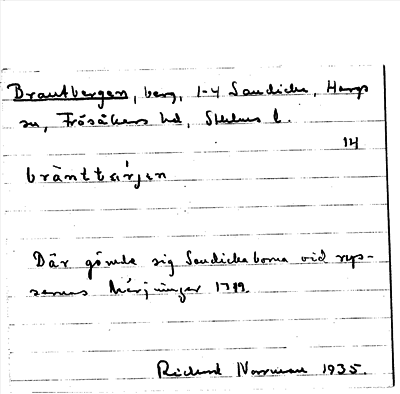 Brantbergen, berg, 1-4 Sandika, Hargs
sn, Frösåkers hd, Sthlms l.
14
bränttärjen
Där gömde sig Sandikaborna vid rys-
sarnas härjningar 1719.
Rickard Norrman 1935.